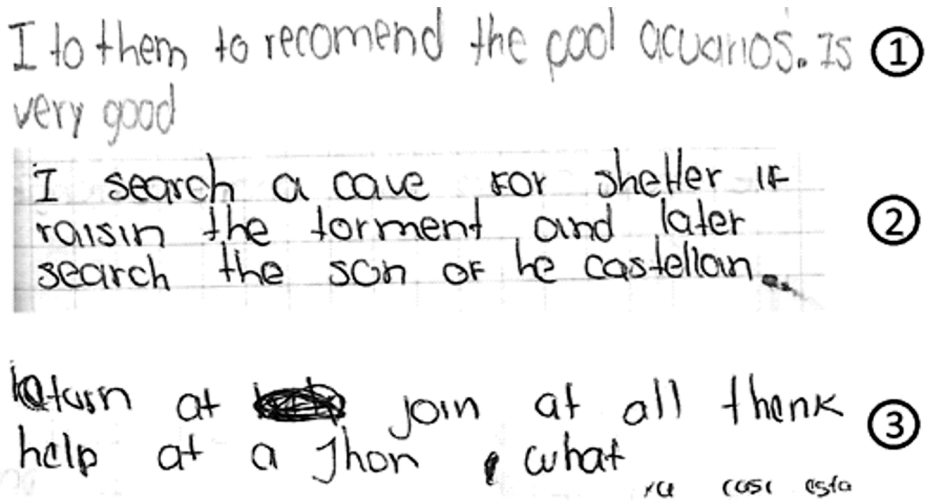 I to them to recomend the cool acuarios. Is ①
very good
I search a cave for shelter if
raisin the torment and later ②
search the son of he castellan.
return at join at all thank ③
help at a Jhon, what
casi esta